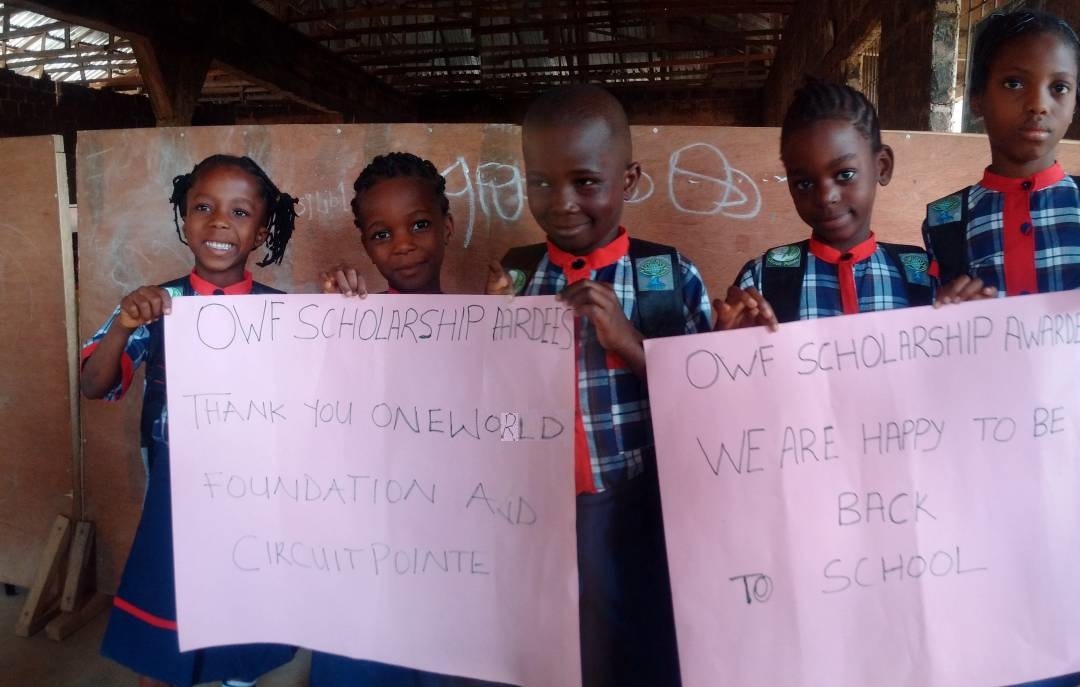 OWF SCHOLARSHIP AIRDEES
THANK YOU ONEWORLD
FOUNDATION AND
CIRCUITPOINTE
OWF SCHOLARSHIP AWARDE
WE ARE HAPPY TO BE
BACK
TO SCHOOL